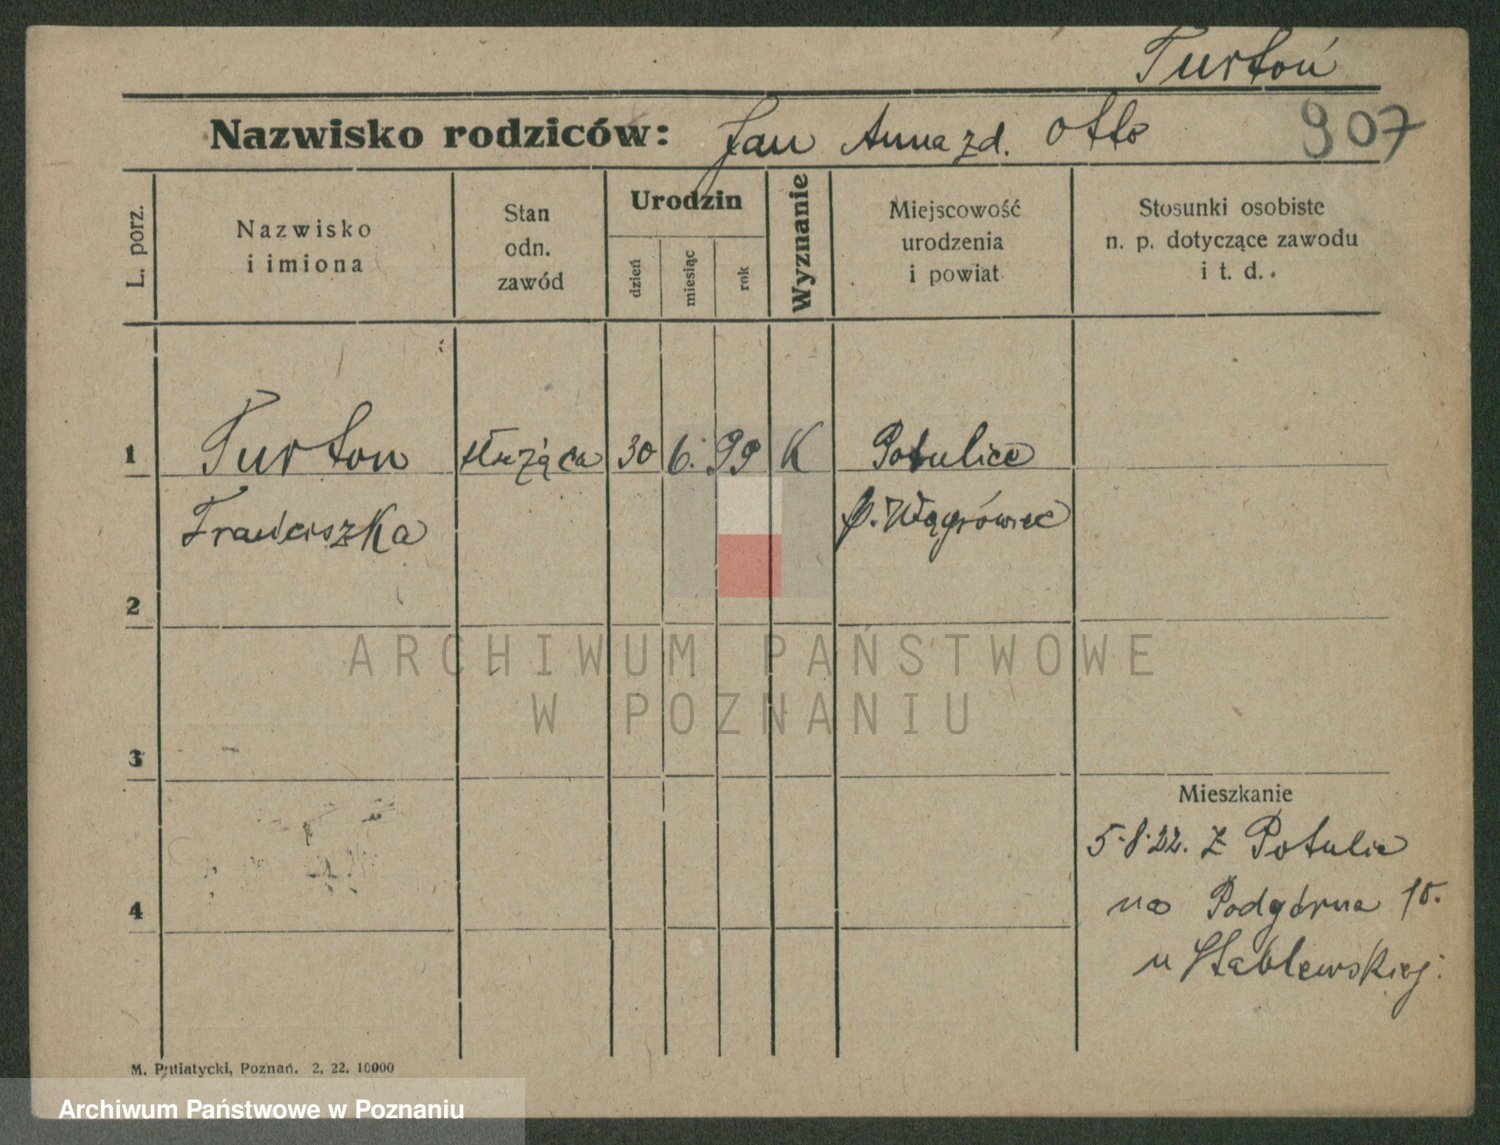 Turtoń
Nazwisko rodziców: Jan Anna zd. Otto 907
L. porz.
Nazwisko
i imiona
Stan
odn.
zawód
Urodzin
dzień
miesiąc
rok
Wyznanie
Miejscowość
urodzenia
i powiat
Stosunki osobiste
n. p. dotyczące zawodu
i t. d.
1 Turton służąca 30 6. 99 K Potulice
Franciszka p. Wągrówiec
2
3
4
Mieszkanie
5.8.22. z Potulic
na Podgórna 10.
u Stablewskiej.
M. Putiatycki, Poznań. 2. 22. 10000
ARCHIWUM PAŃSTWOWE
W POZNANIU
Archiwum Państwowe w Poznaniu